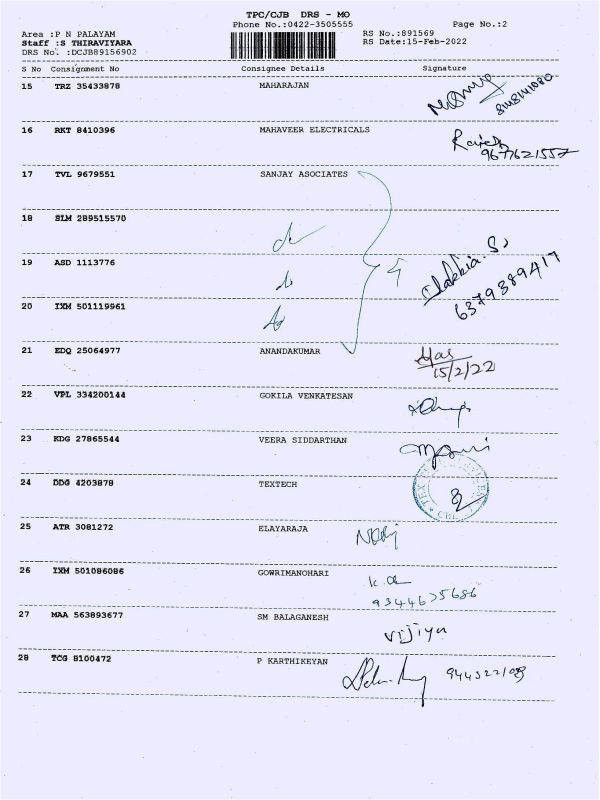 TPC/CJB DRS - MO
Phone No.:0422-3505555 Page No.:2
Area :P N PALAYAM RS No.:891569
Staff :S THIRAVIYARA RS Date:15-Feb-2022
DRS No. :DCJB89156902
S No Consignment No Consignee Details Signature
15 TRZ 35433878 MAHARAJAN
16 RKT 8410396 MAHAVEER ELECTRICALS
9677621557
17 TVL 9679551 SANJAY ASOCIATES
18 SLM 289515570
19 ASD 1113776
6379389417
20 IXM 501119961
21 EDQ 25064977 ANANDAKUMAR
15/2/22
22 VPL 334200144 GOKILA VENKATESAN
23 KDG 27865544 VEERA SIDDARTHAN
24 DDG 4203878 TEXTECH
25 ATR 3081272 ELAYARAJA
26 IXM 501086086 GOWRIMANOHARI
9344635686
27 MAA 563893677 SM BALAGANESH
vijiya
28 TCG 8100472 P KARTHIKEYAN